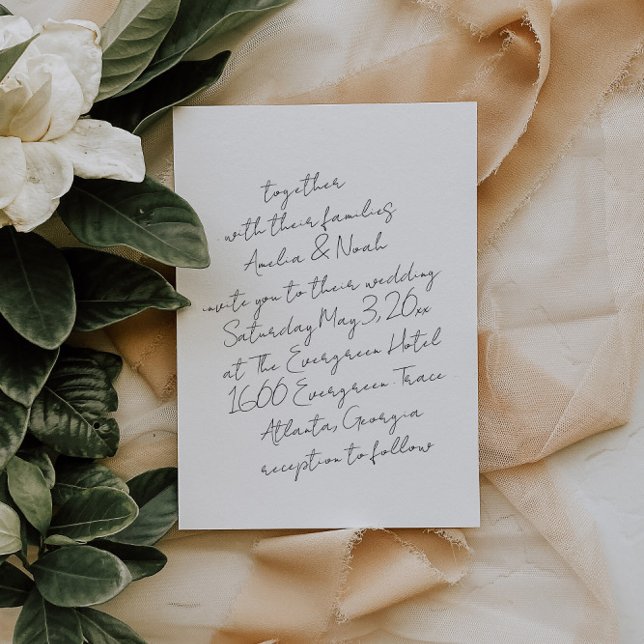 together
with their families
Amelia & Noah
invite you to their wedding
Saturday May 3, 20xx
at The Evergreen Hotel
1600 Evergreen Trace
Atlanta, Georgia
reception to follow